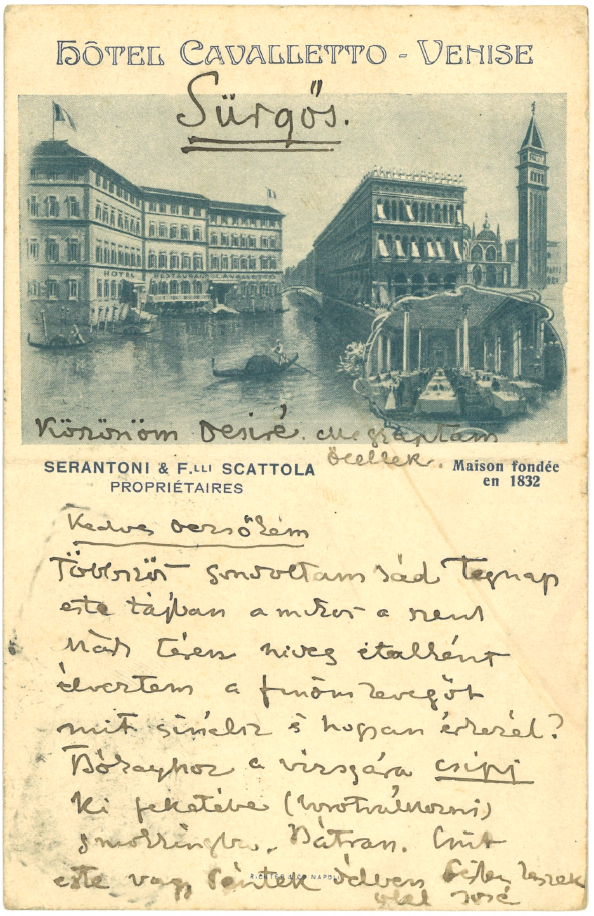 HÔTEL CAVALLETTO - VENISE
Sürgős.
HOTEL RESTAURANT CAVALLETTO
Köszönöm Desiré. Megkaptam
ölellek.
SERANTONI & F.LLI SCATTOLA
PROPRIÉTAIRES
Maison fondée
en 1832
Kedves
Többször gondoltam rád tegnap
este tájban amikor a szent
Márk téren hideg italként
élveztem a finom levegőt
mit csinálsz s hogyan érkezel?
a vizsgára csípj
ki feketébe (borotválkozni)
smokingba. Bátran. Csüt
este vagy péntek délben
RICHTER & Cº NAPOLI
ölel José